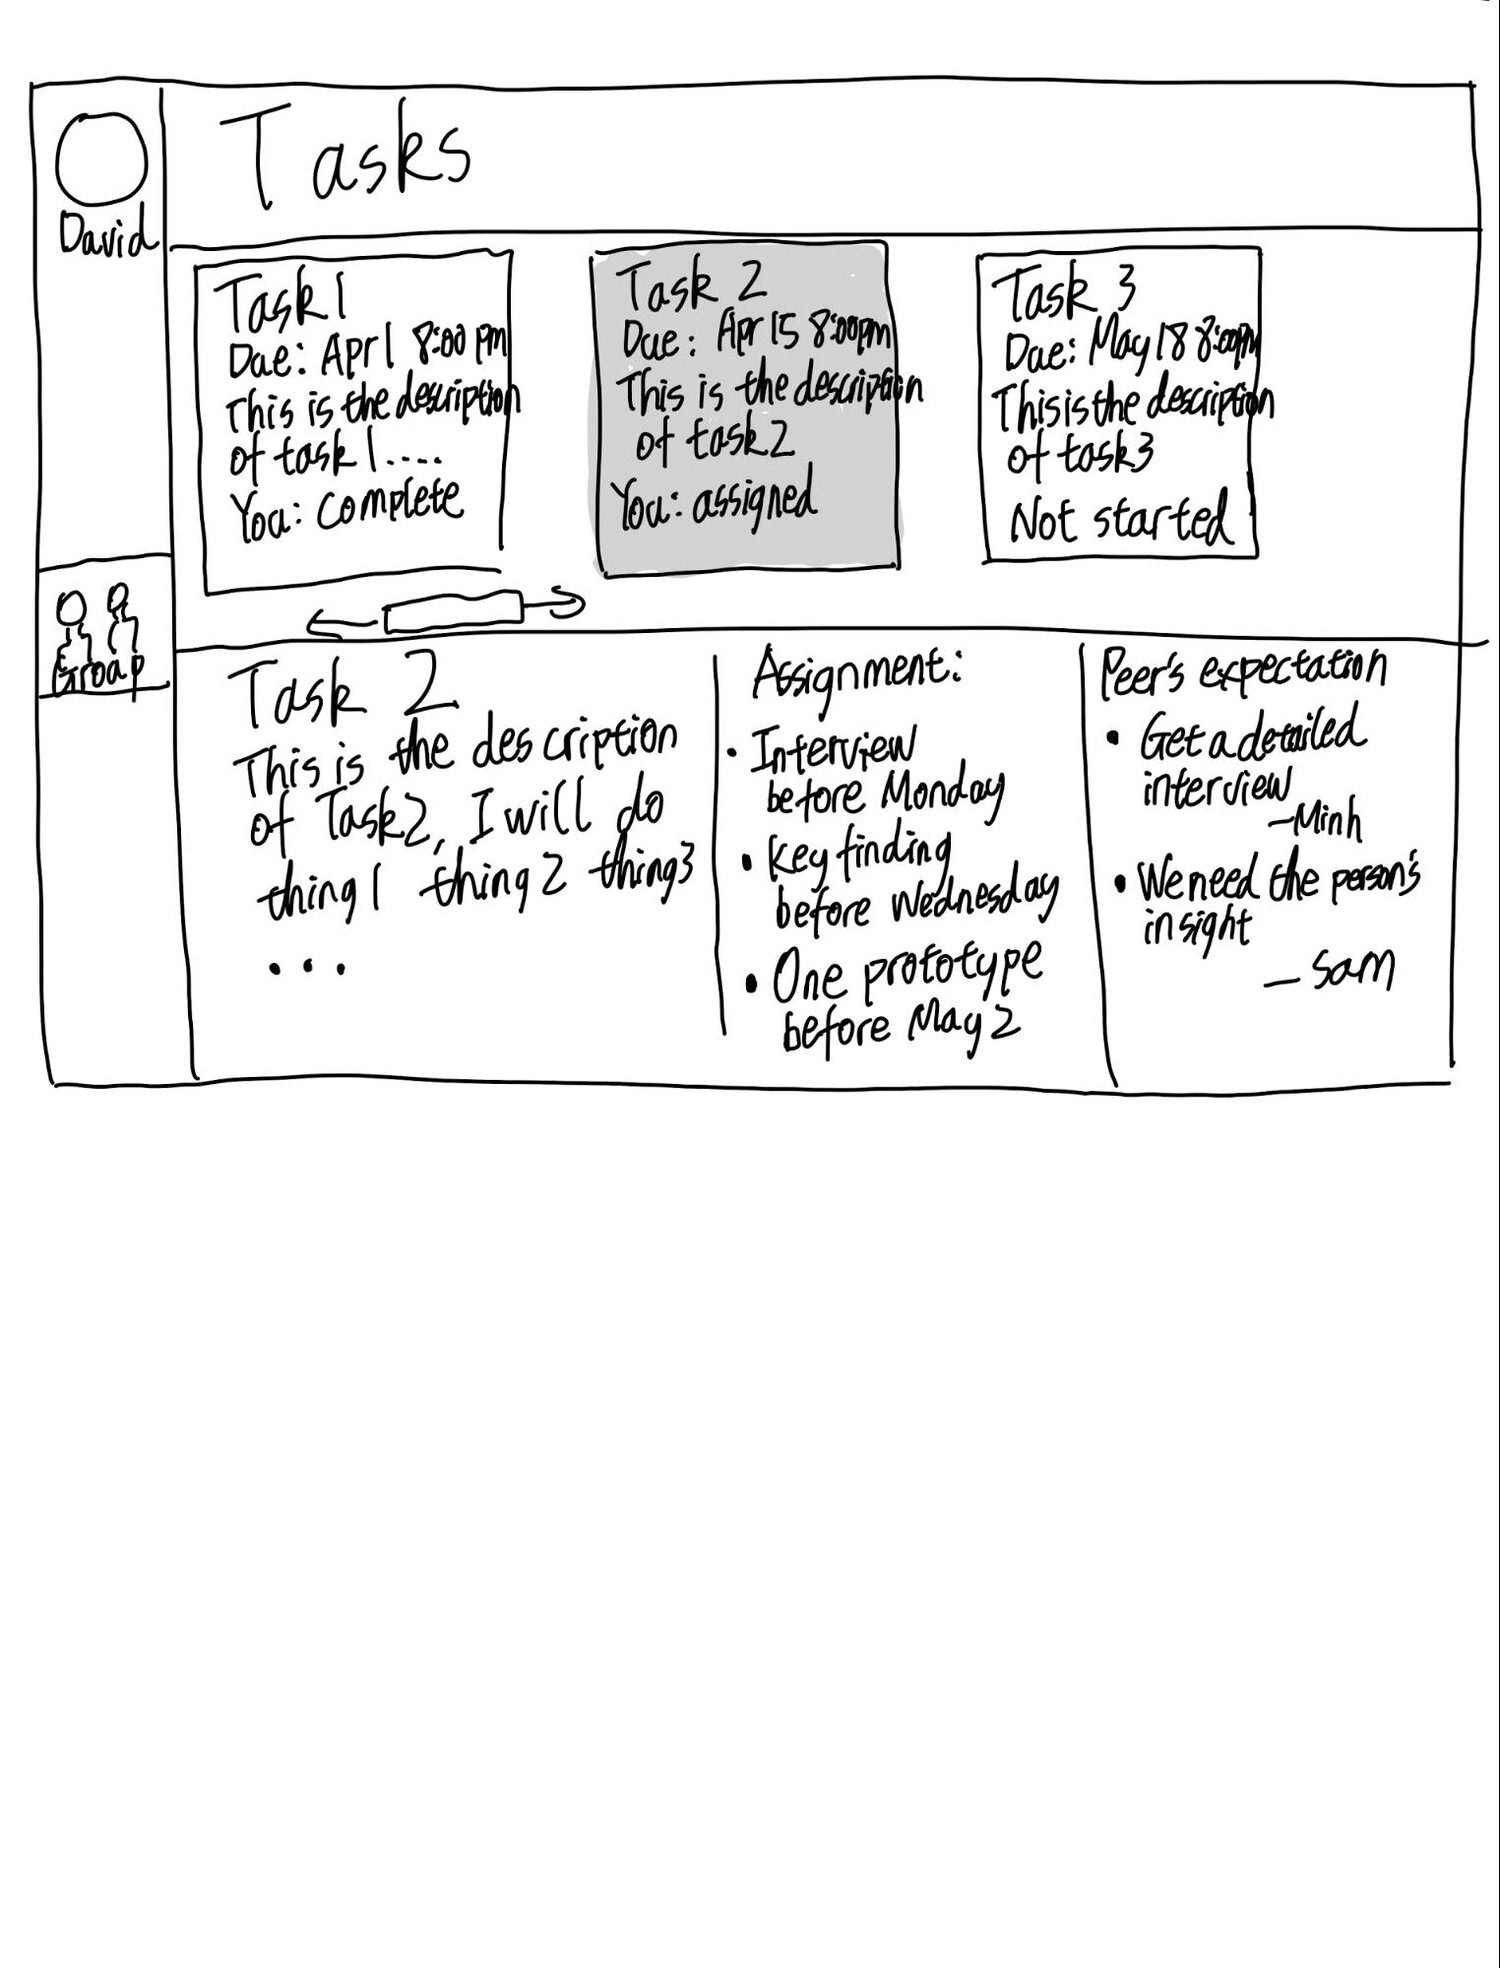 Tasks
David
Task 1
Due: Apr 1 8:00 pm
This is the description
of task 1....
You: complete
Task 2
Due: Apr 15 8:00pm
This is the description
of task 2
You: assigned
Task 3
Due: May 18 8:00pm
This is the description
of task 3
Not started
Group
Task 2
This is the description
of Task2, I will do
thing 1 thing 2 thing3
...
Assignment:
• Interview
before Monday
• Key finding
before Wednesday
• One prototype
before May 2
Peer's expectation
• Get a detailed
interview
-Minh
• We need the person's
insight
- Sam